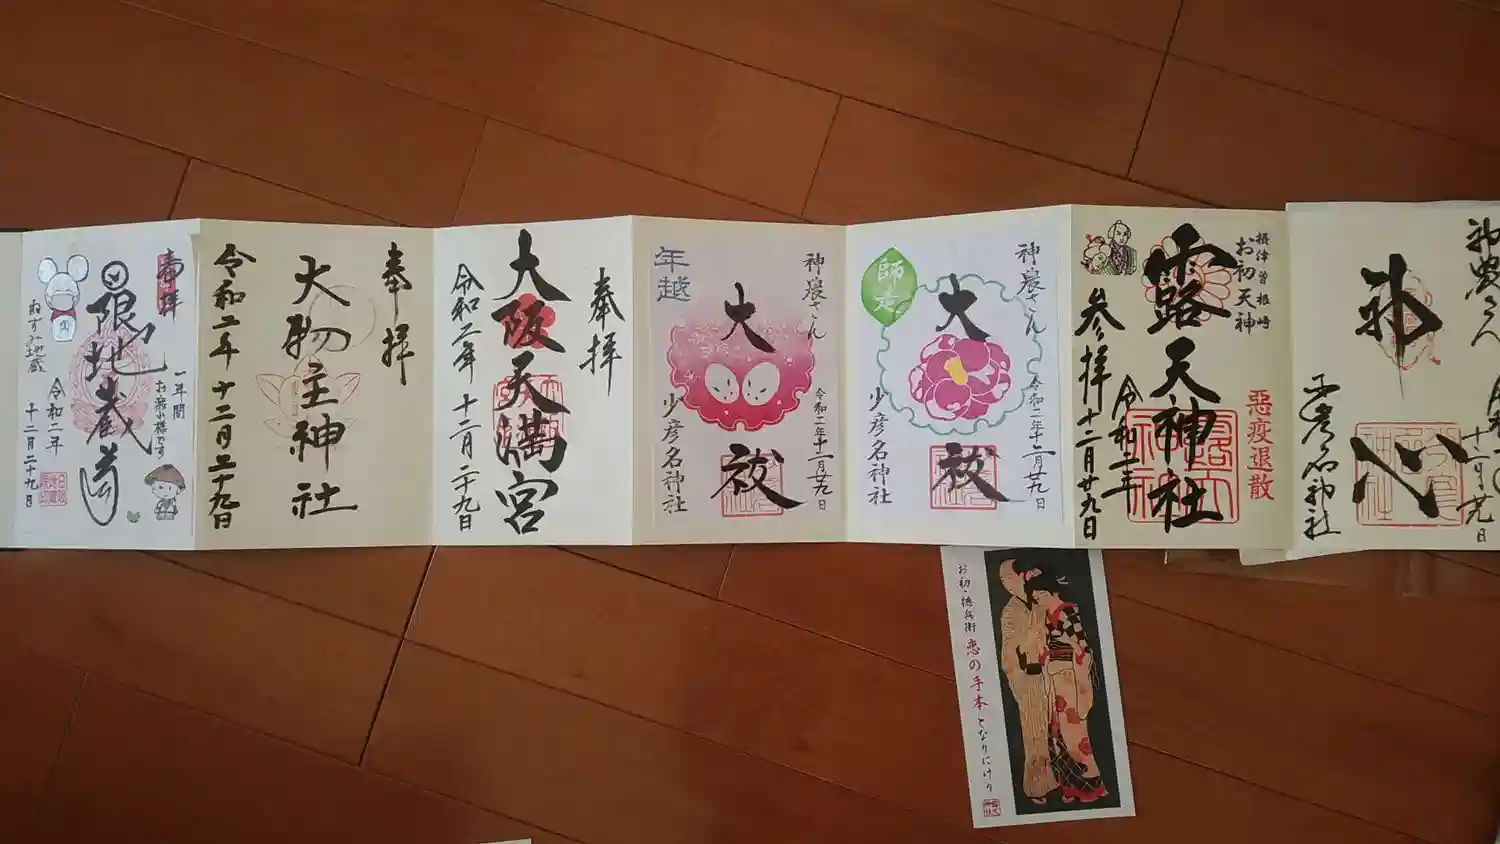 奉拝
限地蔵尊
一年間
お疲れ様です
ねずみ地蔵
令和二年
十二月二十九日
奉拝
大物主神社
令和二年十二月二十九日
奉拝
大阪天満宮
令和二年十二月二十九日
年越
神農さん
大祓
令和二年十二月廿九日
少彦名神社
師走
神農さん
大祓
令和二年十二月廿九日
少彦名神社
摂津曽根崎
お初天神
露天神社
悪疫退散
参拝
令和二年
十二月廿九日
神農さん
心
十二月廿九日
少彦名神社
お初・徳兵衛
恋の手本となりにけり